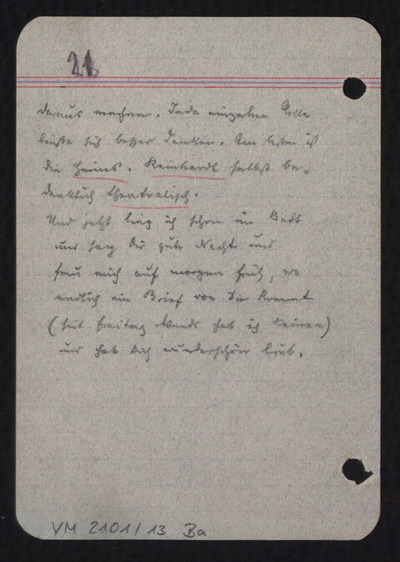 21.
daraus machen. Jede einzelne Rolle
ließe sich besser denken. Am besten ist
die Heims. Reinhardt selbst be-
denklich theatralisch.
Und jetzt lieg ich schon im Bett
und sag Dir gute Nacht und
freu mich auf morgen früh, wo
endlich ein Brief von Dir kommt
(seit Freitag Abends hab ich keinen)
und hab Dich wunderschön lieb.
VM 2101/13 Ba